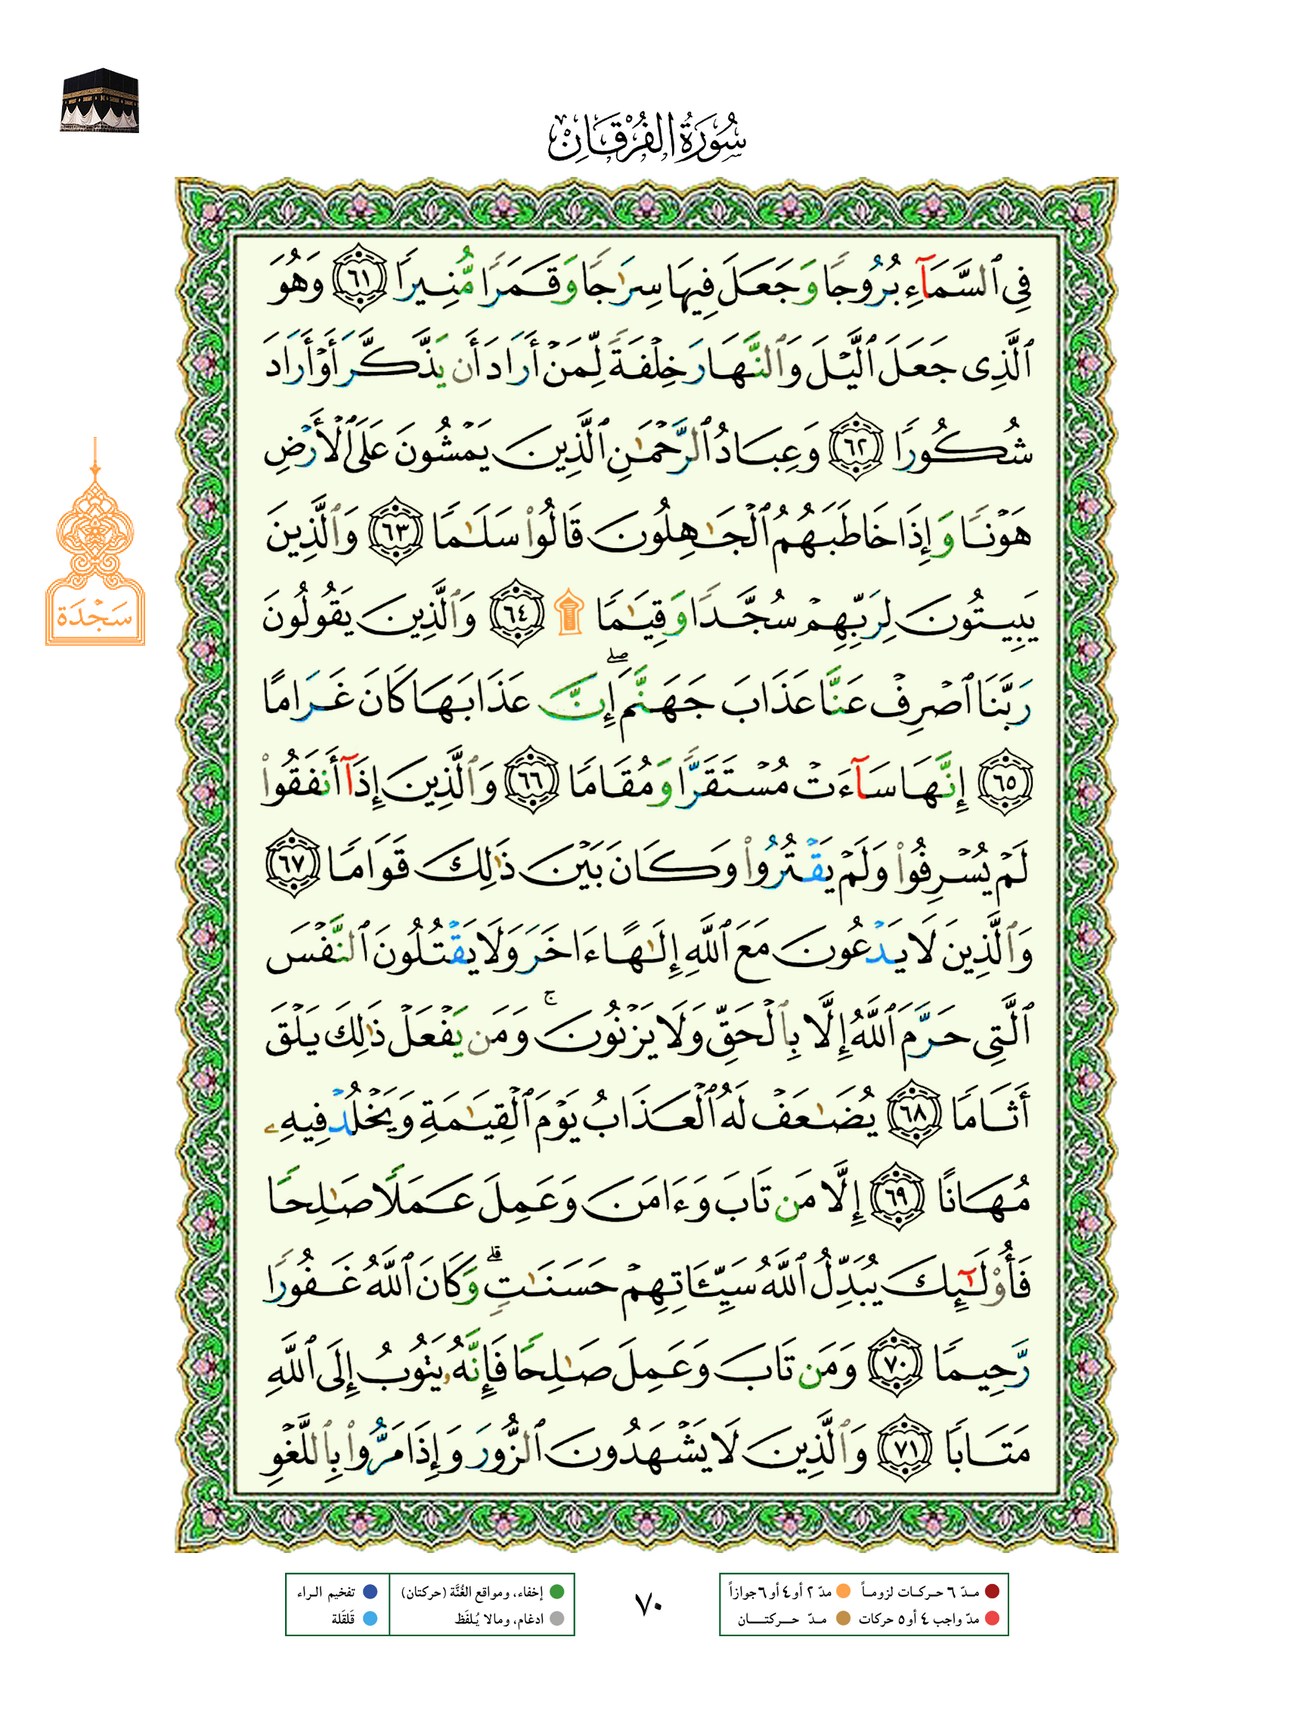 سُورَةُ الفُرْقَانِ
فِى ٱلسَّمَآءِ بُرُوجًا وَجَعَلَ فِيهَا سِرَٰجًا وَقَمَرًا مُّنِيرًا ٦١ وَهُوَ
ٱلَّذِى جَعَلَ ٱلَّيْلَ وَٱلنَّهَارَ خِلْفَةً لِّمَنْ أَرَادَ أَن يَذَّكَّرَ أَوْ أَرَادَ
شُكُورًا ٦٢ وَعِبَادُ ٱلرَّحْمَٰنِ ٱلَّذِينَ يَمْشُونَ عَلَى ٱلْأَرْضِ
هَوْنًا وَإِذَا خَاطَبَهُمُ ٱلْجَٰهِلُونَ قَالُوا۟ سَلَٰمًا ٦٣ وَٱلَّذِينَ
سَجْدَة
يَبِيتُونَ لِرَبِّهِمْ سُجَّدًا وَقِيَٰمًا ۩ ٦٤ وَٱلَّذِينَ يَقُولُونَ
رَبَّنَا ٱصْرِفْ عَنَّا عَذَابَ جَهَنَّمَ ۖ إِنَّ عَذَابَهَا كَانَ غَرَامًا
٦٥ إِنَّهَا سَآءَتْ مُسْتَقَرًّا وَمُقَامًا ٦٦ وَٱلَّذِينَ إِذَآ أَنفَقُوا۟
لَمْ يُسْرِفُوا۟ وَلَمْ يَقْتُرُوا۟ وَكَانَ بَيْنَ ذَٰلِكَ قَوَامًا ٦٧
وَٱلَّذِينَ لَا يَدْعُونَ مَعَ ٱللَّهِ إِلَٰهًا ءَاخَرَ وَلَا يَقْتُلُونَ ٱلنَّفْسَ
ٱلَّتِى حَرَّمَ ٱللَّهُ إِلَّا بِٱلْحَقِّ وَلَا يَزْنُونَ ۚ وَمَن يَفْعَلْ ذَٰلِكَ يَلْقَ
أَثَامًا ٦٨ يُضَٰعَفْ لَهُ ٱلْعَذَابُ يَوْمَ ٱلْقِيَٰمَةِ وَيَخْلُدْ فِيهِۦ
مُهَانًا ٦٩ إِلَّا مَن تَابَ وَءَامَنَ وَعَمِلَ عَمَلًا صَٰلِحًا
فَأُو۟لَٰٓئِكَ يُبَدِّلُ ٱللَّهُ سَيِّـَٔاتِهِمْ حَسَنَٰتٍ ۗ وَكَانَ ٱللَّهُ غَفُورًا
رَّحِيمًا ٧٠ وَمَن تَابَ وَعَمِلَ صَٰلِحًا فَإِنَّهُۥ يَتُوبُ إِلَى ٱللَّهِ
مَتَابًا ٧١ وَٱلَّذِينَ لَا يَشْهَدُونَ ٱلزُّورَ وَإِذَا مَرُّوا۟ بِٱللَّغْوِ
مدّ ٦ حركات لزوماً مدّ ٢ أو ٤ أو ٦ جوازاً
مدّ واجب ٤ أو ٥ حركات مدّ حركتان
٧٠
إخفاء، ومواقع الغُنَّة (حركتان) تفخيم الراء
ادغام، ومالا يُلفَظ قَلقَلة